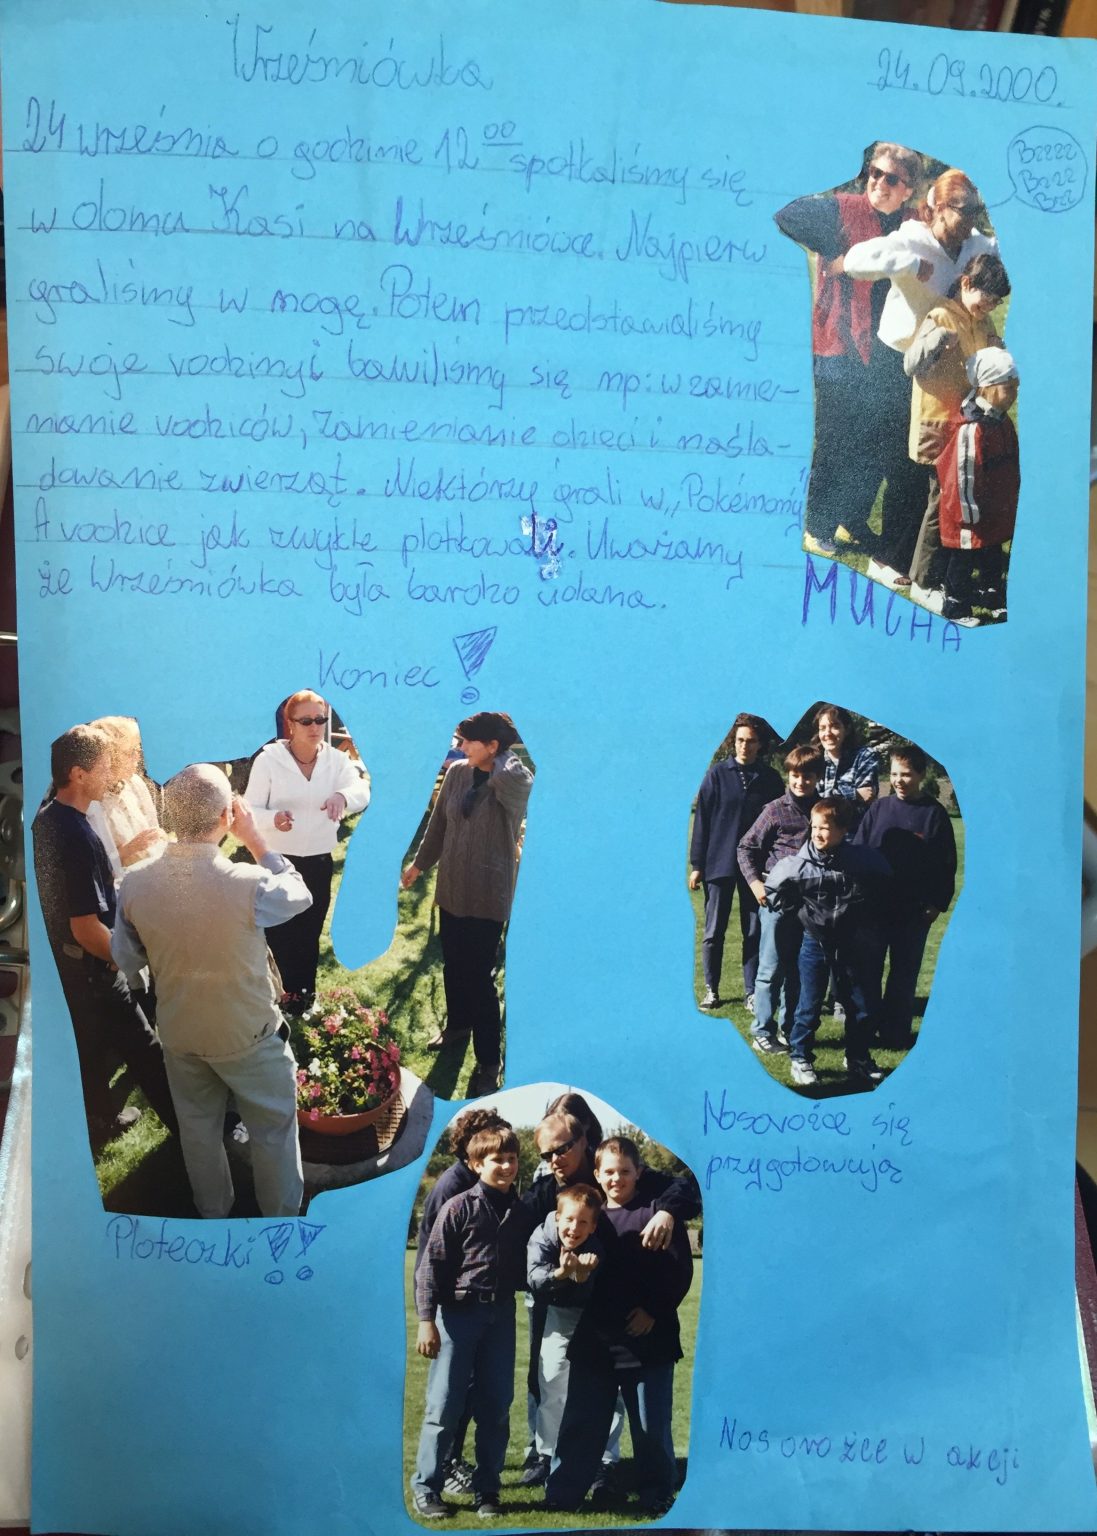 Wrześniówka
24.09.2000.
24 września o godzinie 12 00 spotkaliśmy się
w domu Kasi na Wrześniówce. Najpierw
graliśmy w nogę. Potem przedstawialiśmy
swoje rodziny i bawiliśmy się np: w zamie-
nianie rodziców, zamienianie dzieci i naśla-
dowanie zwierząt. Niektórzy grali w „Pokémony"
A rodzice jak zwykle plotkowali. Uważamy
że Wrześniówka była bardzo udana.
Koniec!
Bzzzz
Bzzz
Bzz
MUCHA
Ploteczki!!
Nosorożce się
przygotowują
Nosorożce w akcji